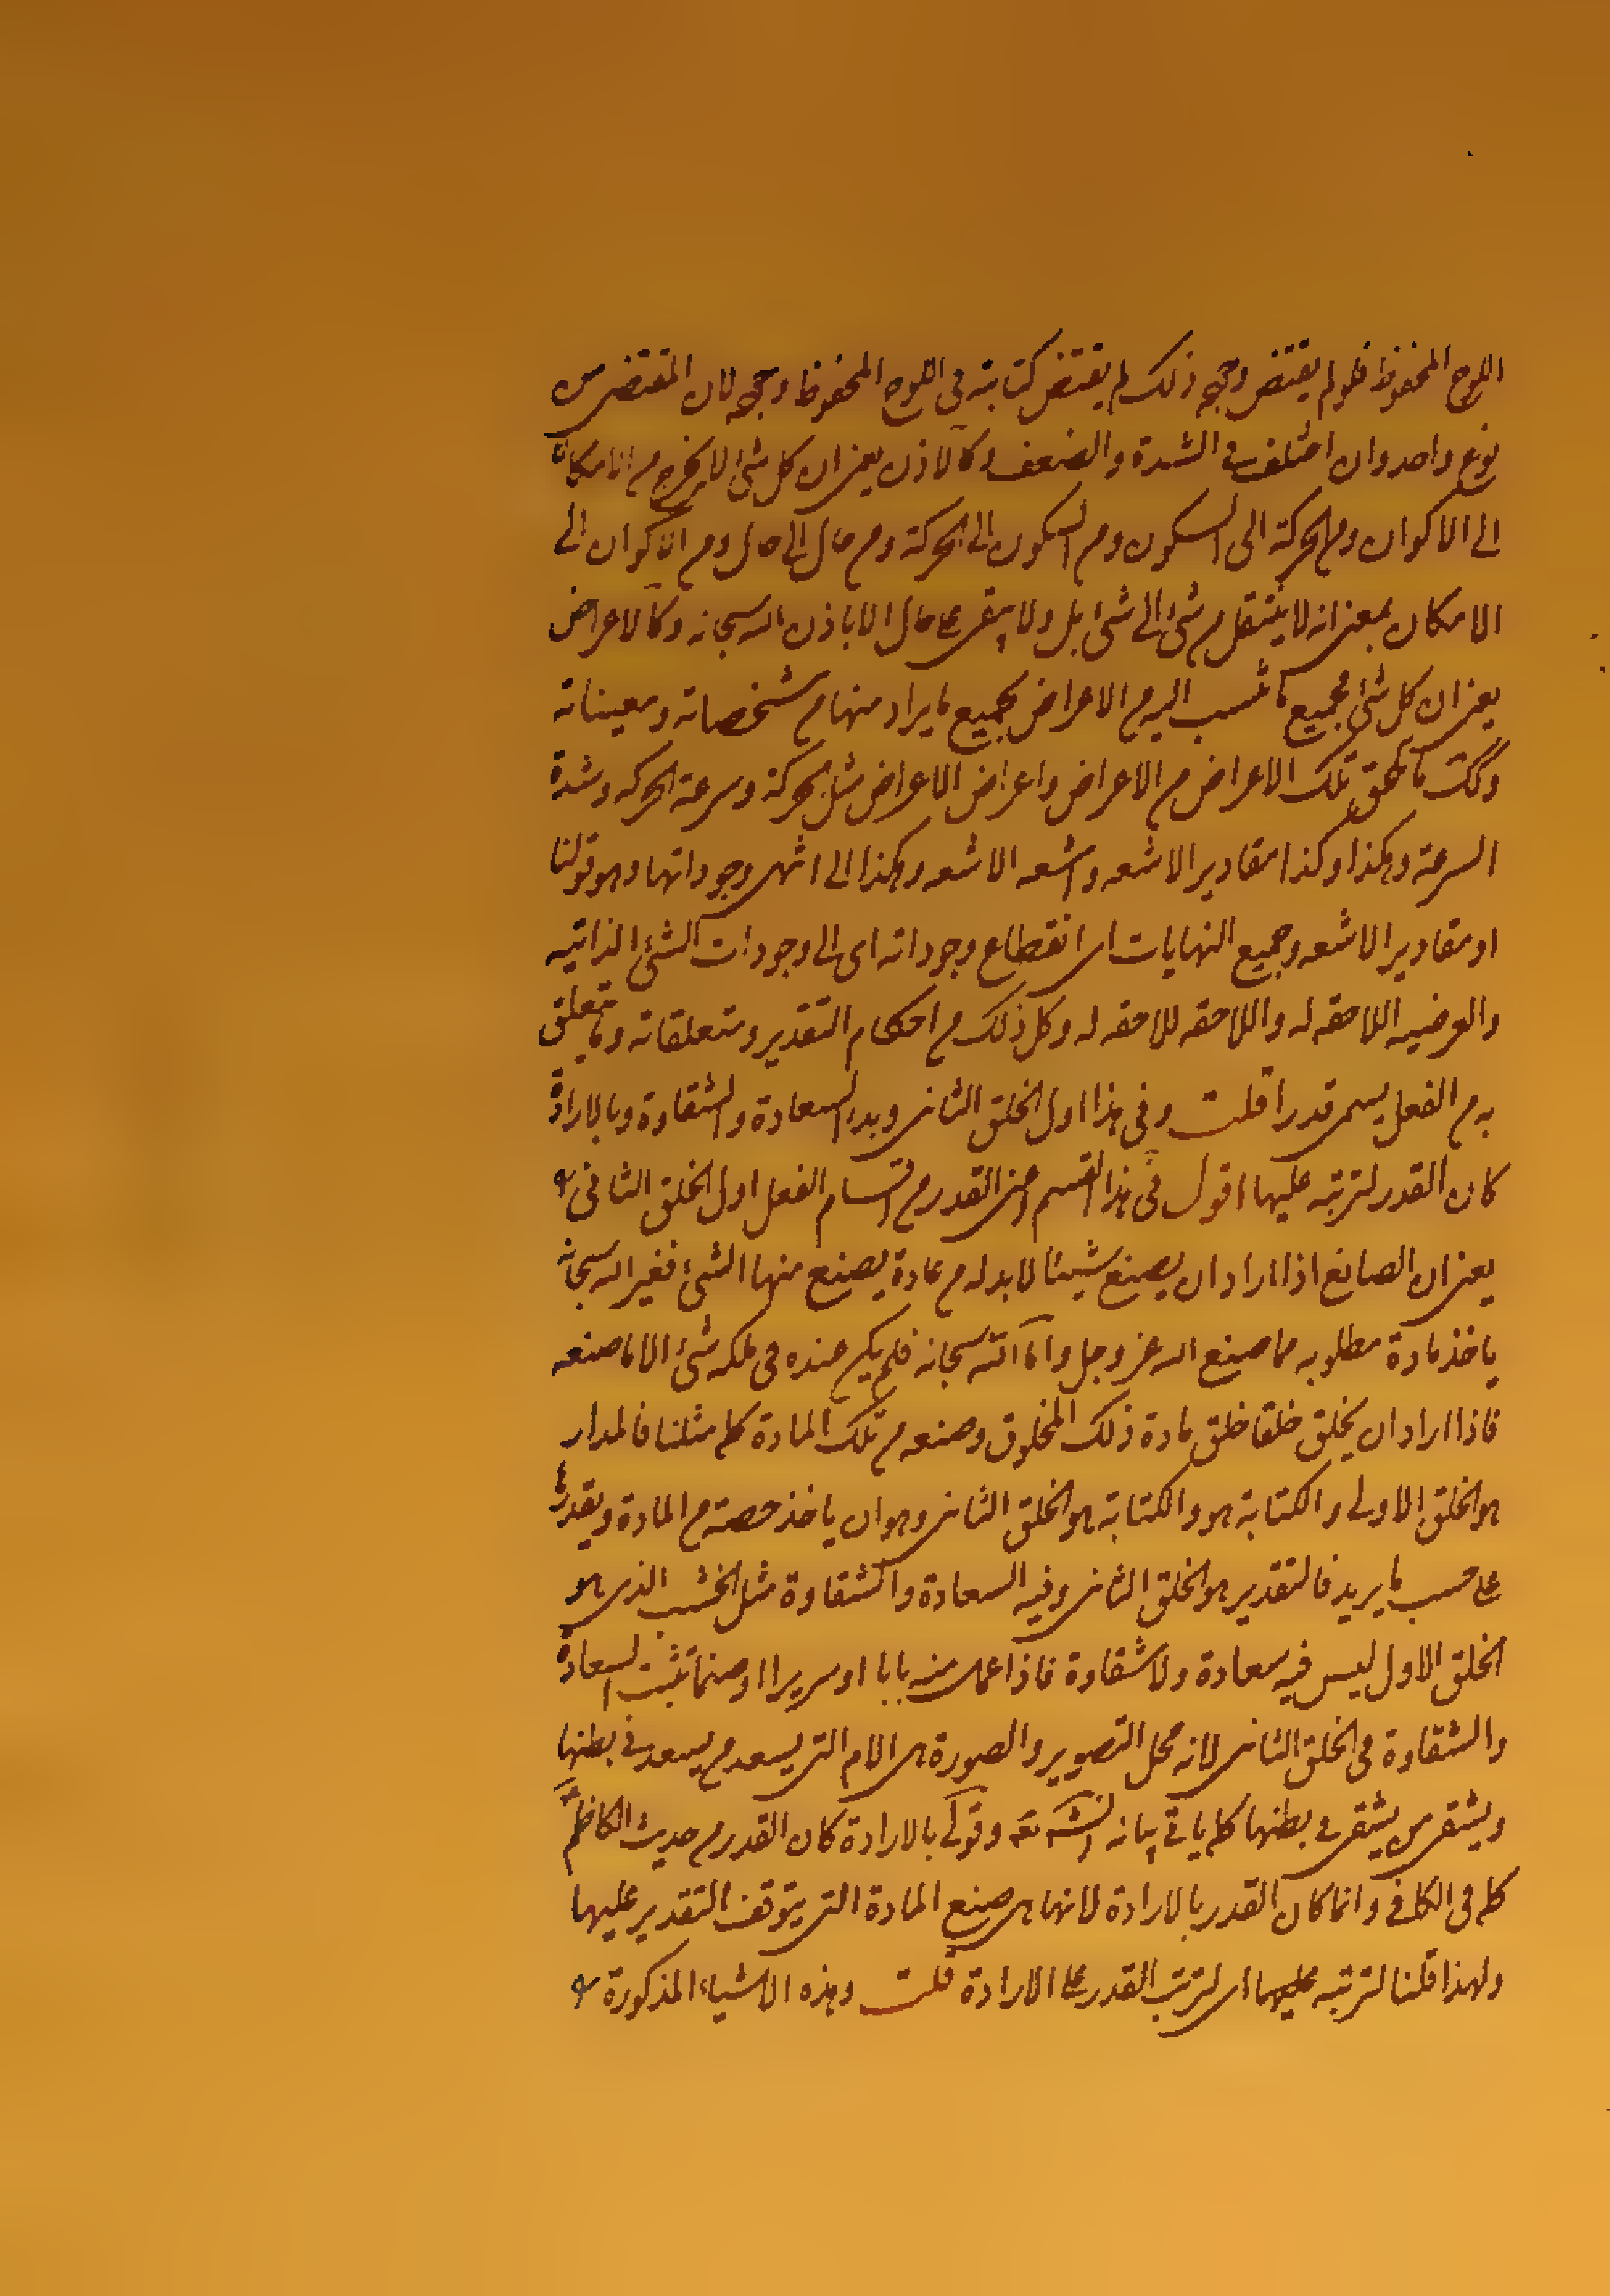 اللوح المحفوظ فلو لم يقتض وجوه ذلك لم يقتض كتابته فى اللوح المحفوظ وجوه لان المقتضى من
نوع واحد وان اختلف فى الشدة والضعف وكالاذن يعنى ان كل شئ لا يخرج من الامكان
الى الاكوان ومن الحركة الى السكون ومن السكون الى الحركة ومن حال الى حال ومن الاكوان الى
الامكان بمعنى انه لا ينتقل من شئ الى شئ بل ولا يبقى على حال الا باذن الله سبحانه وكالاعراض
يعنى ان كل شئ فجميع ما ينسب اليه من الاعراض بجميع ما يراد منها من مشخصاته ومعيناته
وكك ما يلحق تلك الاعراض من الاعراض واعراض الاعراض مثل الحركة وسرعة الحركه وشدة
السرعة وهكذا وكذا مقادير الاشعه واشعه الاشعه وهكذا الى انتهى وجوداتها وهو قولنا
او مقادير الاشعه وجميع النهايات اى انقطاع وجوداته اى الى وجودات الشئ الذاتيه
والعرضيه اللاحقه له واللاحقه للاحقه له وكل ذلك من احكام التقدير ومتعلقاته وما يتعلق
به من الفعل يسمى قدرا قلت وفى هذا اول الخلق الثانى وبدء السعادة والشقاوة وبالارادة
كان القدر لترتبه عليها اقول فى هذا القسم اعنى القدر من اقسام الفعل اول الخلق الثانى
يعنى ان الصانع اذا اراد ان يصنع شيئا لا بد له من مادة يصنع منها الشئ فغير الله سبحانه
ياخذ مادة مطلوبه مما صنع الله عز وجل واما الله سبحانه فلم يكن عنده فى ملكه شئ الا ما صنعه
فاذا اراد ان يخلق خلقا خلق مادة ذلك المخلوق وصنعه من تلك المادة كما مثلنا فالمداد
هو الخلق الاول والكتابة هو والكتابة هو الخلق الثانى وهو ان ياخذ حصته من المادة ويقدرها
على حسب ما يريد فالتقدير هو الخلق الثانى وفيه السعادة والشقاوة مثل الخشب الذى هو
الخلق الاول ليس فيه سعادة ولا شقاوة فاذا عمل منه بابا او سريرا او صنما تثبت السعادة
والشقاوة فى الخلق الثانى لانه محل التصوير والصورة هى الام التى يسعد من يسعد فى بطنها
ويشقى من يشقى فى بطنها كما ياتى بيانه انشاء الله تعالى وقولى بالارادة كان القدر من حديث الكاظم ع
كما فى الكافى وانما كان القدر بالارادة لانها هى صنع المادة التى يتوقف التقدير عليها
ولهذا قلنا لترتبه عليها اى لترتب القدر على الارادة قلت وهذه الاشياء المذكورة